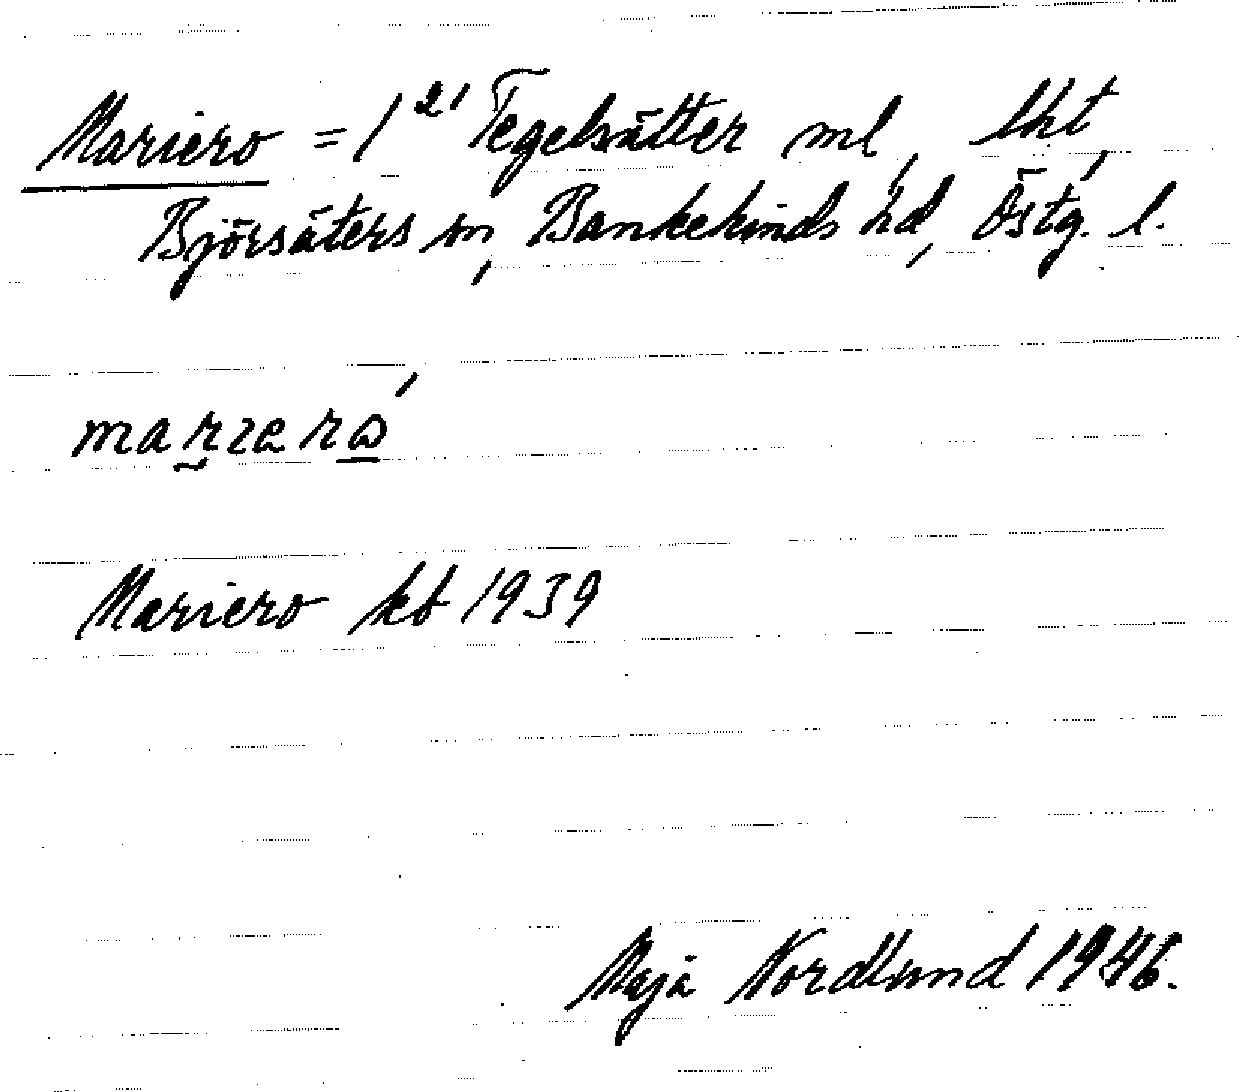 Mariero = 1²¹ Tegelsätter ml, lht,
Björsäters sn, Bankekinds hd, Östg. l.
Mariero kb 1939
Maja Nordlund 1946.